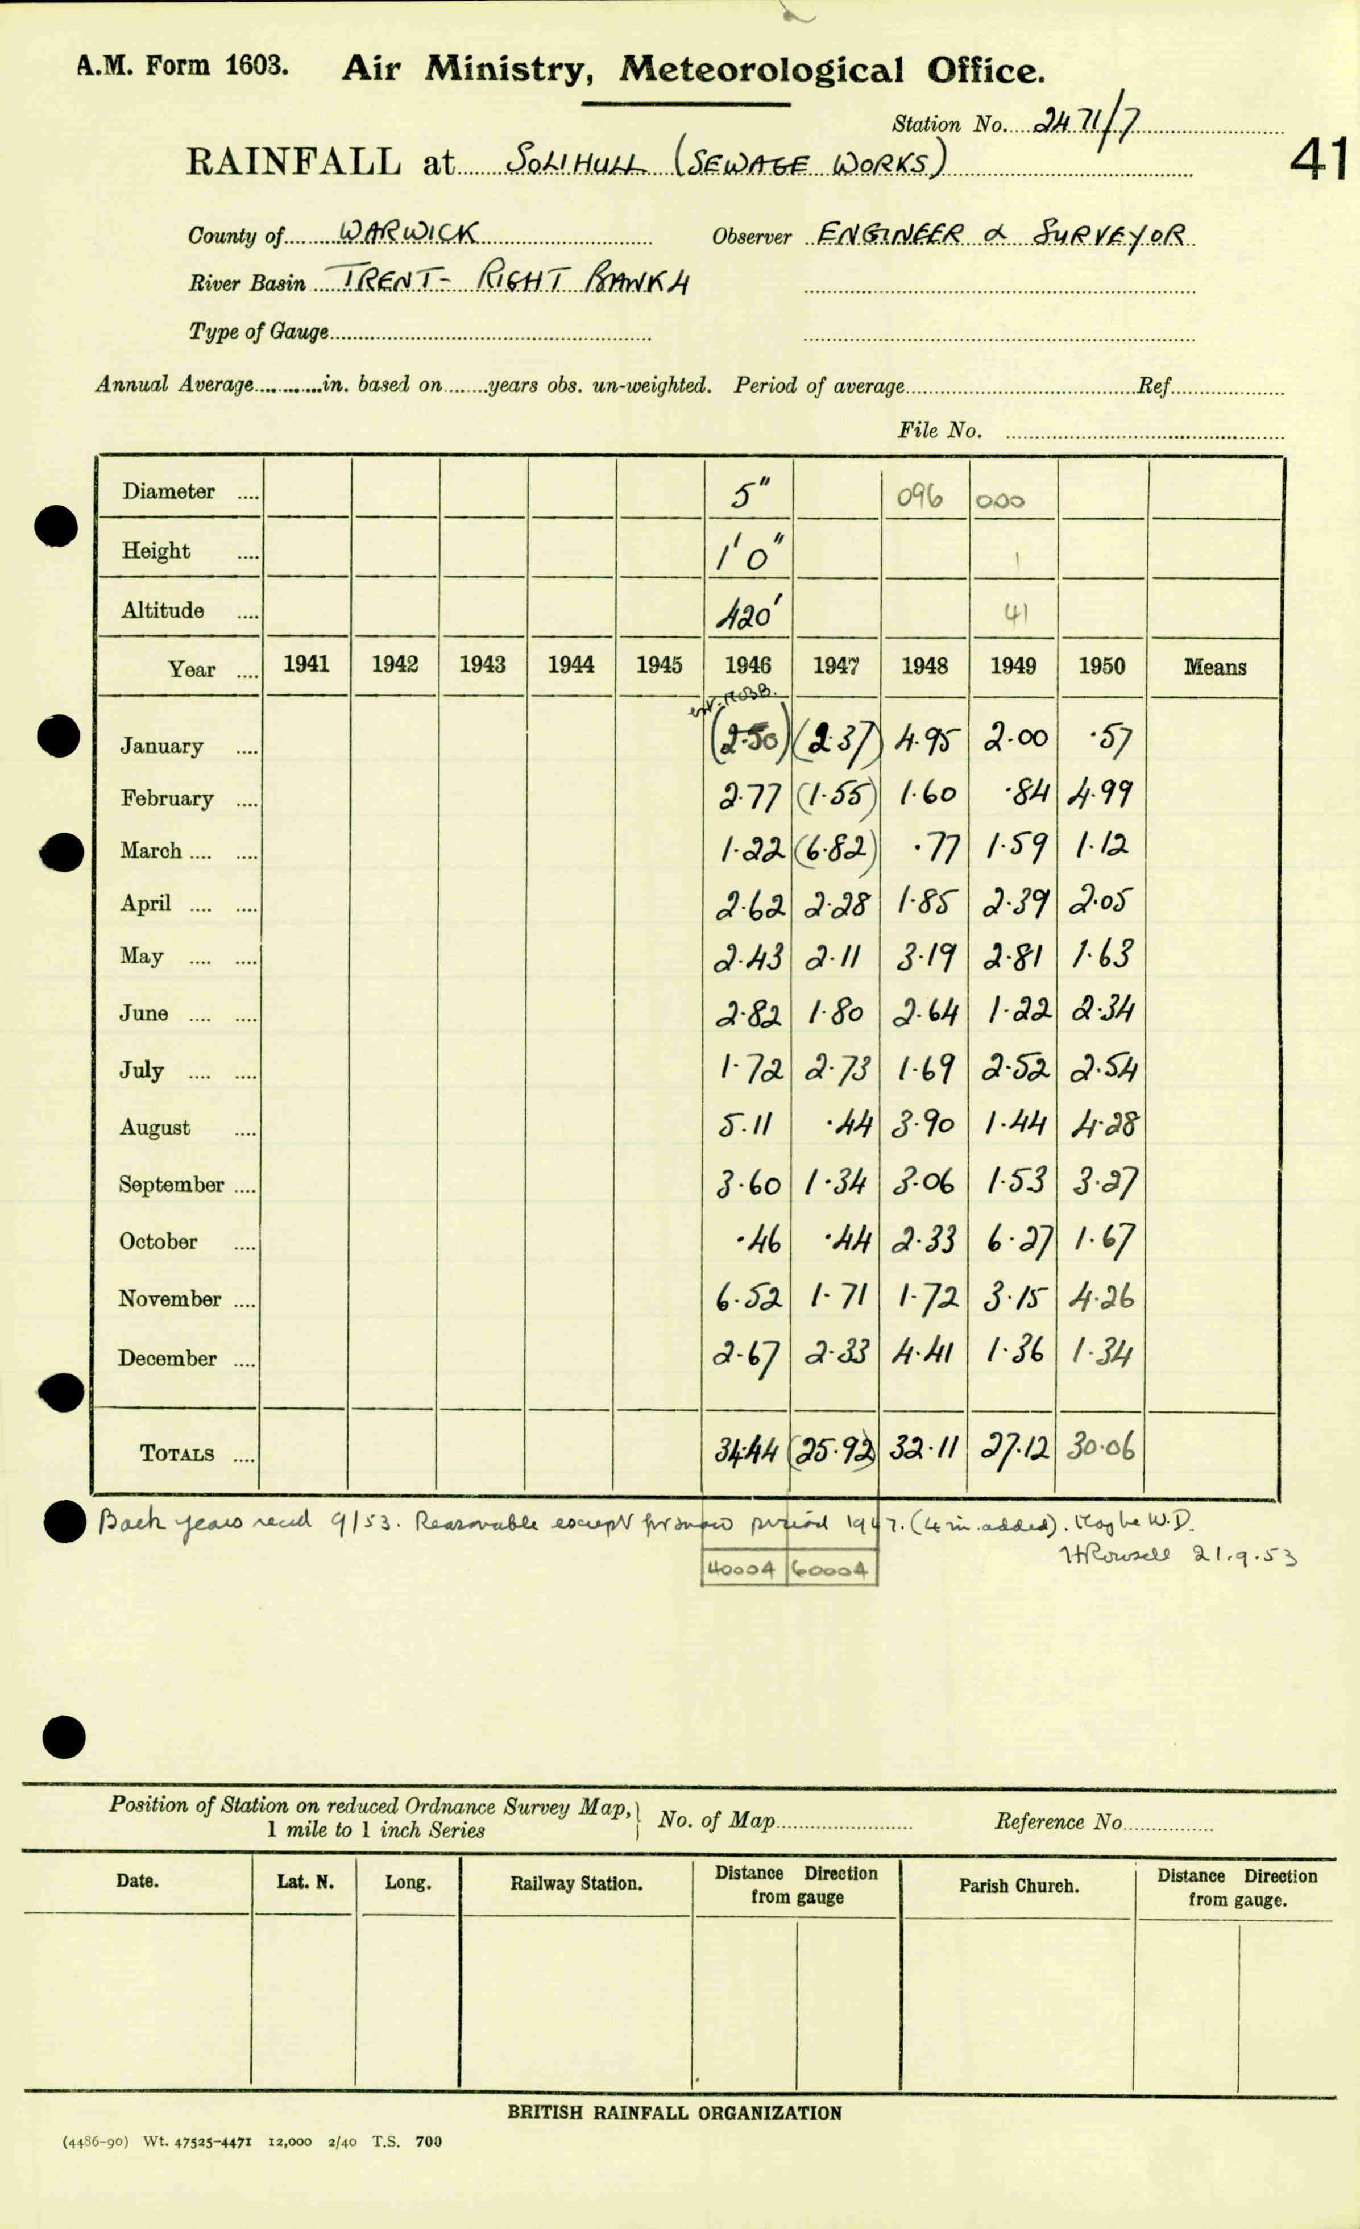 A.M. Form 1603. Air Ministry, Meteorological Office.
Station No. 2471/7
41
RAINFALL at SOLIHULL (SEWAGE WORKS)
County of WARWICK Observer ENGINEER & SURVEYOR
River Basin TRENT- RIGHT BANK 4
Type of Gauge
Annual Average in. based on years obs. un-weighted. Period of average Ref.
File No.
Diameter 5" 096 000
Height 1'0" 1
Altitude 420' 41
Year 1941 1942 1943 1944 1945 1946 1947 1948 1949 1950 Means
January (2.50) (2.37) 4.95 2.00 .57
February 2.77 (1.55) 1.60 .84 4.99
March 1.22 (6.82) .77 1.59 1.12
April 2.62 2.28 1.85 2.39 2.05
May 2.43 2.11 3.19 2.81 1.63
June 2.82 1.80 2.64 1.22 2.34
July 1.72 2.73 1.69 2.52 2.54
August 5.11 .44 3.90 1.44 4.28
September 3.60 1.34 3.06 1.53 3.27
October .46 .44 2.33 6.27 1.67
November 6.52 1.71 1.72 3.15 4.26
December 2.67 2.33 4.41 1.36 1.34
TOTALS 34.44 (25.92) 32.11 27.12 30.06
Back years recd 9/53. Reasonable except for snow period 1947. (4 in. added). May be W.D.
HRowsell 21.9.53
40004 60004
Position of Station on reduced Ordnance Survey Map, 1 mile to 1 inch Series No. of Map Reference No.
Date. Lat. N. Long. Railway Station. Distance Direction from gauge Parish Church. Distance Direction from gauge.
BRITISH RAINFALL ORGANIZATION
(4486-90) Wt. 47525-4471 12,000 2/40 T.S. 700